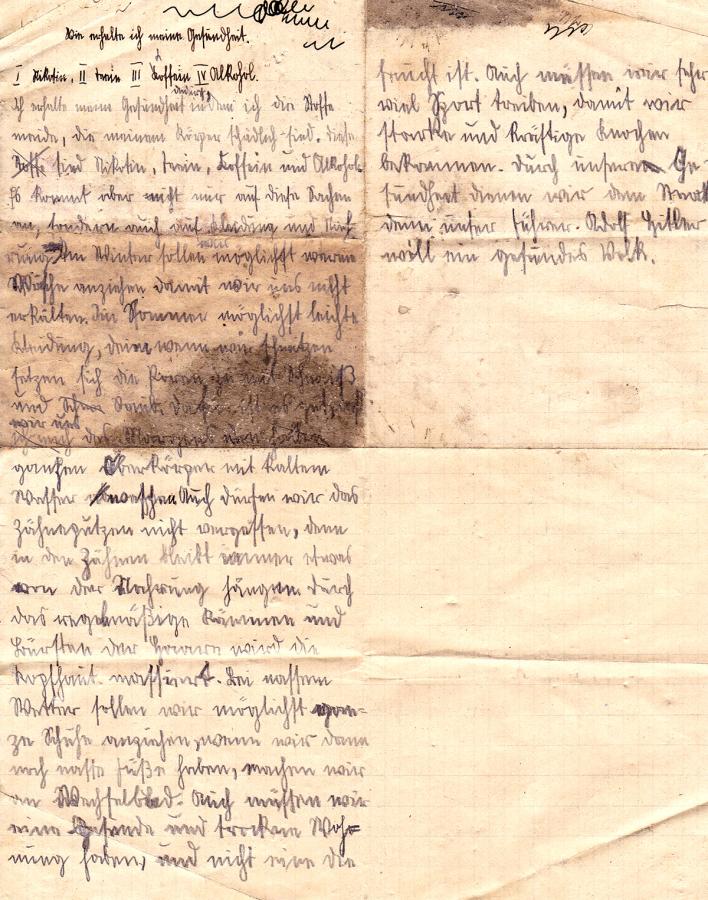 Wie erhalte ich meine Gesundheit.
I Nikotin, II Tein III Koffein IV Alkohol.
dadurch
Ich erhalte meine Gesundheit indem ich die Stoffe
meide, die meinem Körper schädlich sind. diese
Stoffe sind Nikotin, Tein, Koffein und Alkohol.
Es kommt aber nicht nur auf diese Sachen
an, sondern auch auf Kleidung und Nah
rung. Im Winter sollen wir möglichst warme
Wäsche anziehen damit wir uns nicht
erkälten. Im Sommer möglichst leichte
Kleidung, denn wenn wir schwitzen
setzen sich die Poren zu mit Schweiß
und Staub. Daher ist es gut,
wir uns
des Morgens den
ganzen Oberkörper mit kaltem
Wasser waschen Auch dürfen wir das
Zähneputzen nicht vergessen, denn
in den Zähnen bleibt immer etwas
von der Nachrung hängen. Durch
das regelmäßige Kämmen und
Bürsten der Haare wird die
Kopfhaut massiert. Bei nassem
Wetter sollen wir möglichst gan-
ze Schuhe anziehen, wenn wir dann
noch nasse Füße haben, machen wir
an Wechselbad. Auch müssen wir
eine Gesunde und trockene Woh=
nung haben, und nicht eine die
feucht ist. Auch müssen wir sehr
viel Sport treiben, damit wir
starke und kräftige Knochen
bekommen. Durch unseren Ge-
sundheit dienen wir dem Staat
denn unser Führer. Adolf Hitler
will ein gesundes Volk.